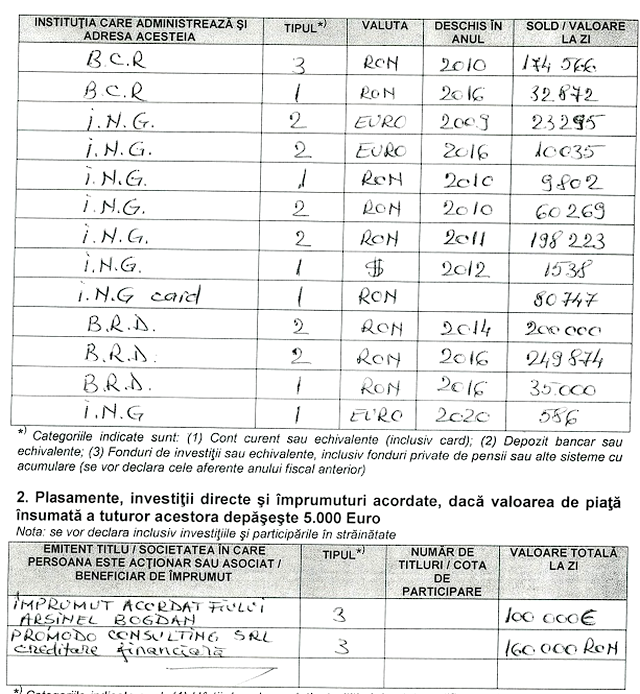 INSTITUŢIA CARE ADMINISTREAZĂ ŞI ADRESA ACESTEIA TIPUL*) VALUTA DESCHIS ÎN ANUL SOLD / VALOARE LA ZI
B.C.R 3 RON 2010 174 566
B.C.R 1 RON 2016 32 872
i.N.G. 2 EURO 2009 23295
i.N.G. 2 EURO 2016 10035
i.N.G. 1 RON 2010 9802
i.N.G. 2 RON 2010 60 269
i.N.G. 2 RON 2011 198 223
i.N.G. 1 $ 2012 1538
i.N.G card 1 RON 80747
B.R.D. 2 RON 2014 200 000
B.R.D. 2 RON 2016 249 874
B.R.D. 1 RON 2016 35.000
i.N.G 1 EURO 2020 586
*) Categoriile indicate sunt: (1) Cont curent sau echivalente (inclusiv card); (2) Depozit bancar sau
echivalente; (3) Fonduri de investiţii sau echivalente, inclusiv fonduri private de pensii sau alte sisteme cu
acumulare (se vor declara cele aferente anului fiscal anterior)
2. Plasamente, investiţii directe şi împrumuturi acordate, dacă valoarea de piaţă
însumată a tuturor acestora depăşeşte 5.000 Euro
Nota: se vor declara inclusiv investiţiile şi participările în străinătate
EMITENT TITLU / SOCIETATEA ÎN CARE PERSOANA ESTE ACŢIONAR SAU ASOCIAT / BENEFICIAR DE ÎMPRUMUT TIPUL*) NUMĂR DE TITLURI / COTA DE PARTICIPARE VALOARE TOTALĂ LA ZI
ÎMPRUMUT ACORDAT FIULUI
ARSINEL BOGDAN 3 100 000€
PROMODO CONSULTING SRL
creditare financiară 3 160000 RON